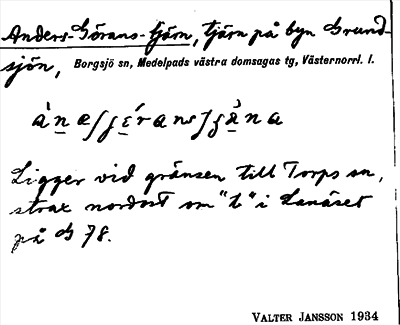 Anders-Görans-tjärn, tjärn på byn Grund-
sjön, Borgsjö sn, Medelpads västra domsagas tg, Västernorrl. l.
Ligger vid gränsen till Torps sn,
strax nordost om "t" i Lanåset
på G 78.
VALTER JANSSON 1934